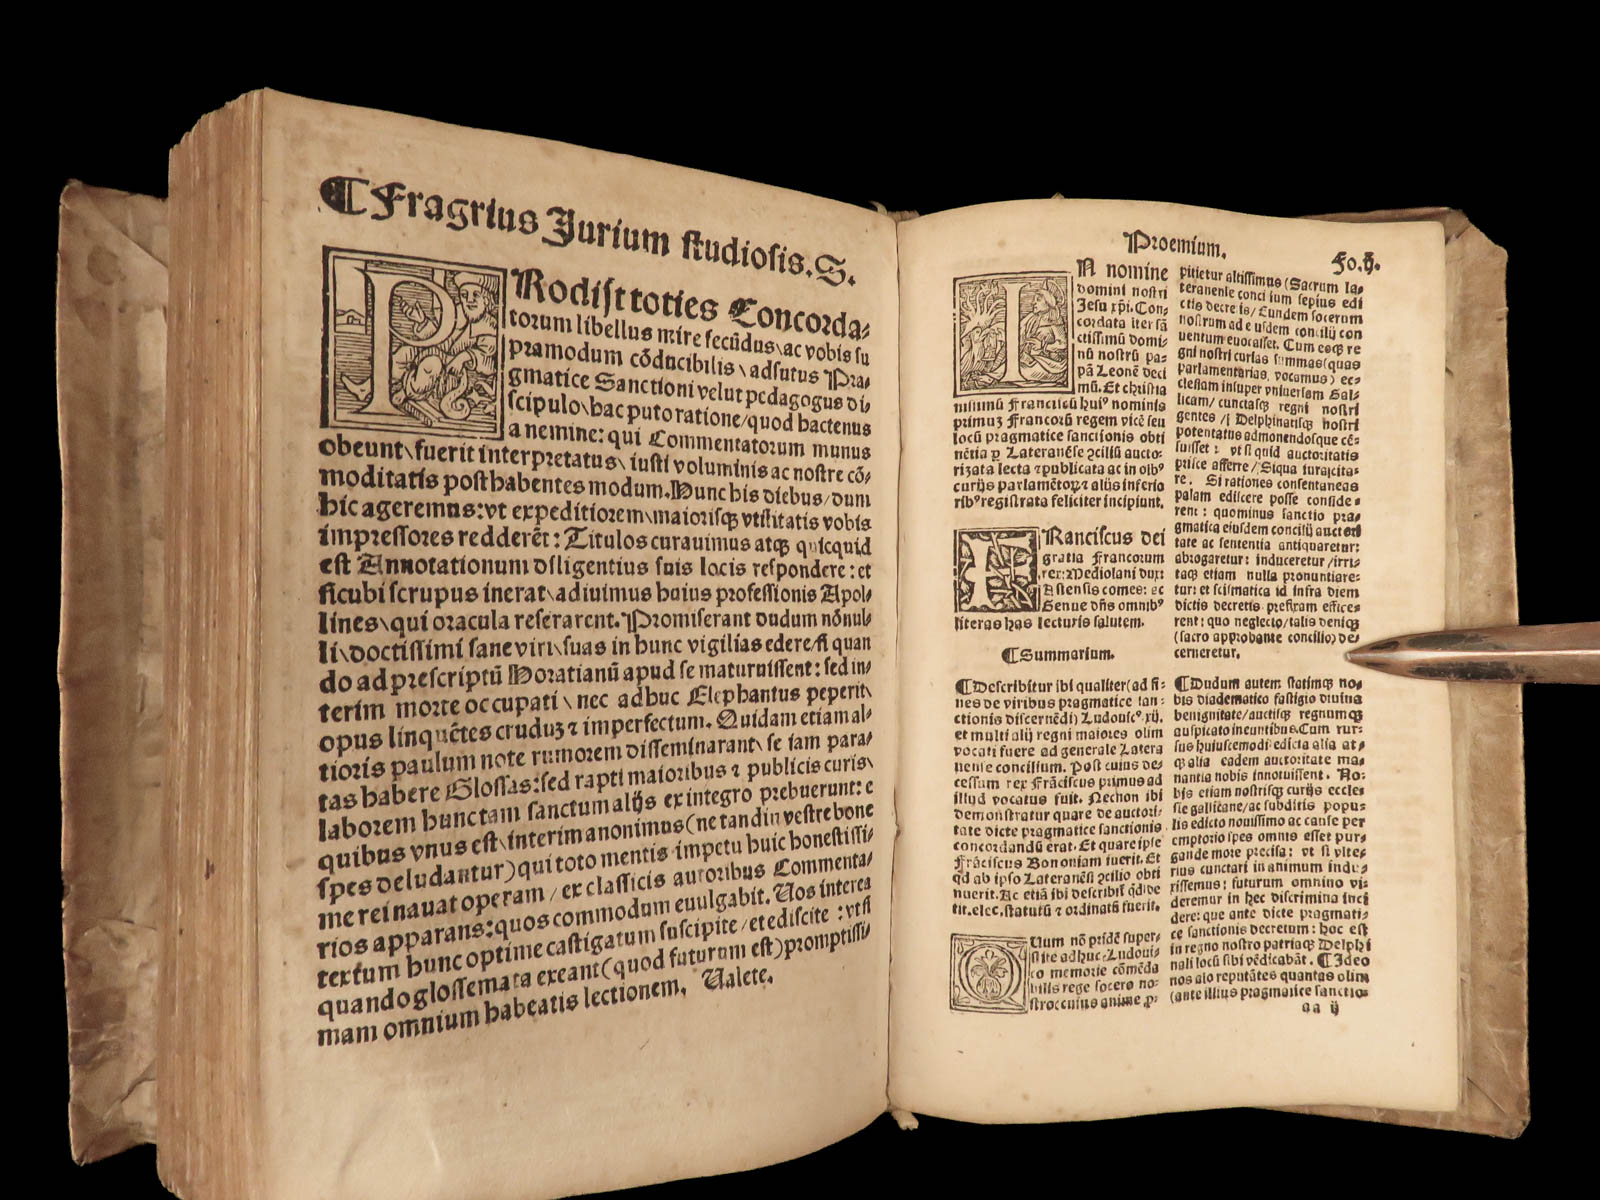 ¶ Fragrius Jurium studiosis. S.
PRodijt toties Concorda-
torum libellus mire fecūdus\ ac vobis su
pramodum cōducibilis \ adsutus Pra-
gmatice Sanctioni velut pedagogus di-
scipulo\ hac puto ratione/ quod hactenus
a nemine: qui Commentatorum munus
obeunt\ fuerit interpretatus\ iusti voluminis ac nostre cō-
moditatis posthabentes modum. Nunc his diebus/ dum
hic ageremus: vt expeditiorem\ maiorisqʒ vtilitatis vobis
impressores redderēt: Titulos curauimus atqʒ quicquid
est Annotationum diligentius suis locis respondere: et
sicubi scrupus inerat\ adiuimus huius professionis Apol-
lines\ qui oracula reserarent. Promiserant dudum nōnul-
li\ doctissimi sane viri\ suas in hunc vigilias edere/ si quan
do ad prescriptū Horatianū apud se maturuissent: sed in-
terim morte occupati \ nec adhuc Elephantus peperit\
opus linquētes cruduʒ ⁊ imperfectum. Quidam etiam al-
tioris paulum note rumorem disseminarant\ se iam para-
tas habere Glossas: sed rapti maioribus ⁊ publicis curis\
laborem hunc tam sanctum alijs ex integro prebuerunt: e
quibus vnus est\ interim anonimus (ne tandiu vestre bone
spes deludantur) qui toto mentis impetu huic honestissi-
me rei nauat operam / ex classicis autoribus Commenta-
rios apparans: quos commodum euulgabit. Uos interea
textum hunc optime castigatum suscipite / et ediscite : vt si
quando glossemata exeant (quod futurum est) promptissi-
mam omnium habeatis lectionem. Ualete.
Proemium.
Fo. ij.
IN nomine
domini nostri
Jesu xpi. Con-
cordata iter sā
ctissimū domi-
nū nostrū pa-
pā Leonē deci
mū. Et christia
nissimū Franciscū huiꝰ nominis
primuʒ Francorū regem vicē seu
locū pragmatice sanctionis obti
nētia ꝑ Lateranēse ꝯciliū aucto-
rizata lecta ⁊ publicata ac in oībꝰ
curijs parlamētoꝝ ⁊ alijs inferio
ribꝰ registrata feliciter incipiunt.
FRanciscus dei
gratia Francorum
rex: Mediolani dux:
Astensis comes: ac
Genue dn̄s omnibꝰ
literas has lecturis salutem.
¶ Summarium.
¶ Describitur ibi qualiter (ad fi-
nes de viribus pragmatice san-
ctionis discernēdi) Ludouicꝰ. xij.
et multi alij regni maiores olim
vocati fuere ad generale Latera
nense concilium. Post cuius de-
cessum rex Frāciscus primus ad
illud vocatus fuit. Necnon ibi
demonstratur quare de auctori-
tate dicte pragmatice sanctionis
concordandū erat. Et quare ipse
Frāciscus Bononiam iuerit. Et
qd ab ipso Lateranēsi ꝯcilio obti
nuerit. Ac etiā ibi describit
tit. elec. statutū ⁊ ordinatū fuerit.
QUum nō pridē super-
stite adhuc Ludoui-
co memorie cōmēda
bilis rege socero no-
stro cuius anime ꝓ-
pitietur altissimus (Sacrum la-
teranense concilium sepius edi
ctis decretis / Eundem socerum
nostrum ad eiusdem concilij con
uentum euocasset. Cum eaqʒ re
gni nostri curias summas (quas
parlamentarias vocamus) ec-
clesiam insuper vniuersam Gal-
licam/ cunctasqʒ regni nostri
gentes / Delphinatisqʒ nostri
potentatus admonendosque cē-
suisset : vt si quid auctoritatis
 afferre / Siqua iura citare-
re. Si rationes consentaneas
palam edicere posse conside-
rent : quominus sanctio pra-
gmatica eiusdem concilij auctori
tate ac sententia antiquaretur:
abrogaretur: induceretur / irri-
taqʒ etiam nulla pronuntiare-
tur: et scismatica id infra diem
dictis decretis prestitam effice-
rent : quo neglecto/ talis deniqʒ
(sacro approbante concilio) de-
cerneretur.
¶ Dudum autem statimqʒ no-
bis diadematico fastigio diuina
benignitate/ auctisqʒ regnumqʒ
auspicato ineuntibus. Cum rur-
sus huiuscemodi edicta alia at-
qʒ alia eadem auctoritate ma-
nantia nobis innotuissent. No-
bis etiam nostrisqʒ curijs eccle-
sie gallicane/ ac subditis popu-
lis edicto nouissimo ac cause per
emptorio spes omnis esset pur-
gande more precisa : vt si vlte-
rius cunctari in animum indu-
xissemus : futurum omnino vi-
deremur in hec discrimina inci
dere: que ante dicte pragmati-
ce sanctionis decretum : hoc est
in regno nostro patriaqʒ Delphi
nali locū sibi vēdicabāt. ¶ Ideo
nos aīo reputātes quantas olim
(ante illius pragmatice sanctio-
aa ij